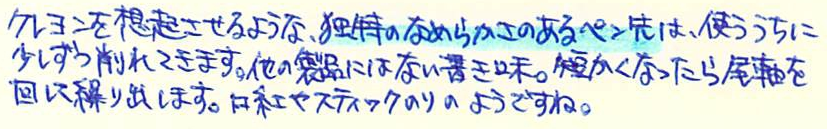 クレヨンを想起させるような、独特のなめらかさのあるペン先は、使ううちに
少しずつ削れてきます。他の製品にはない書き味。短かくなったら尾軸を
回して繰り出します。口紅やスティックのりのようですね。